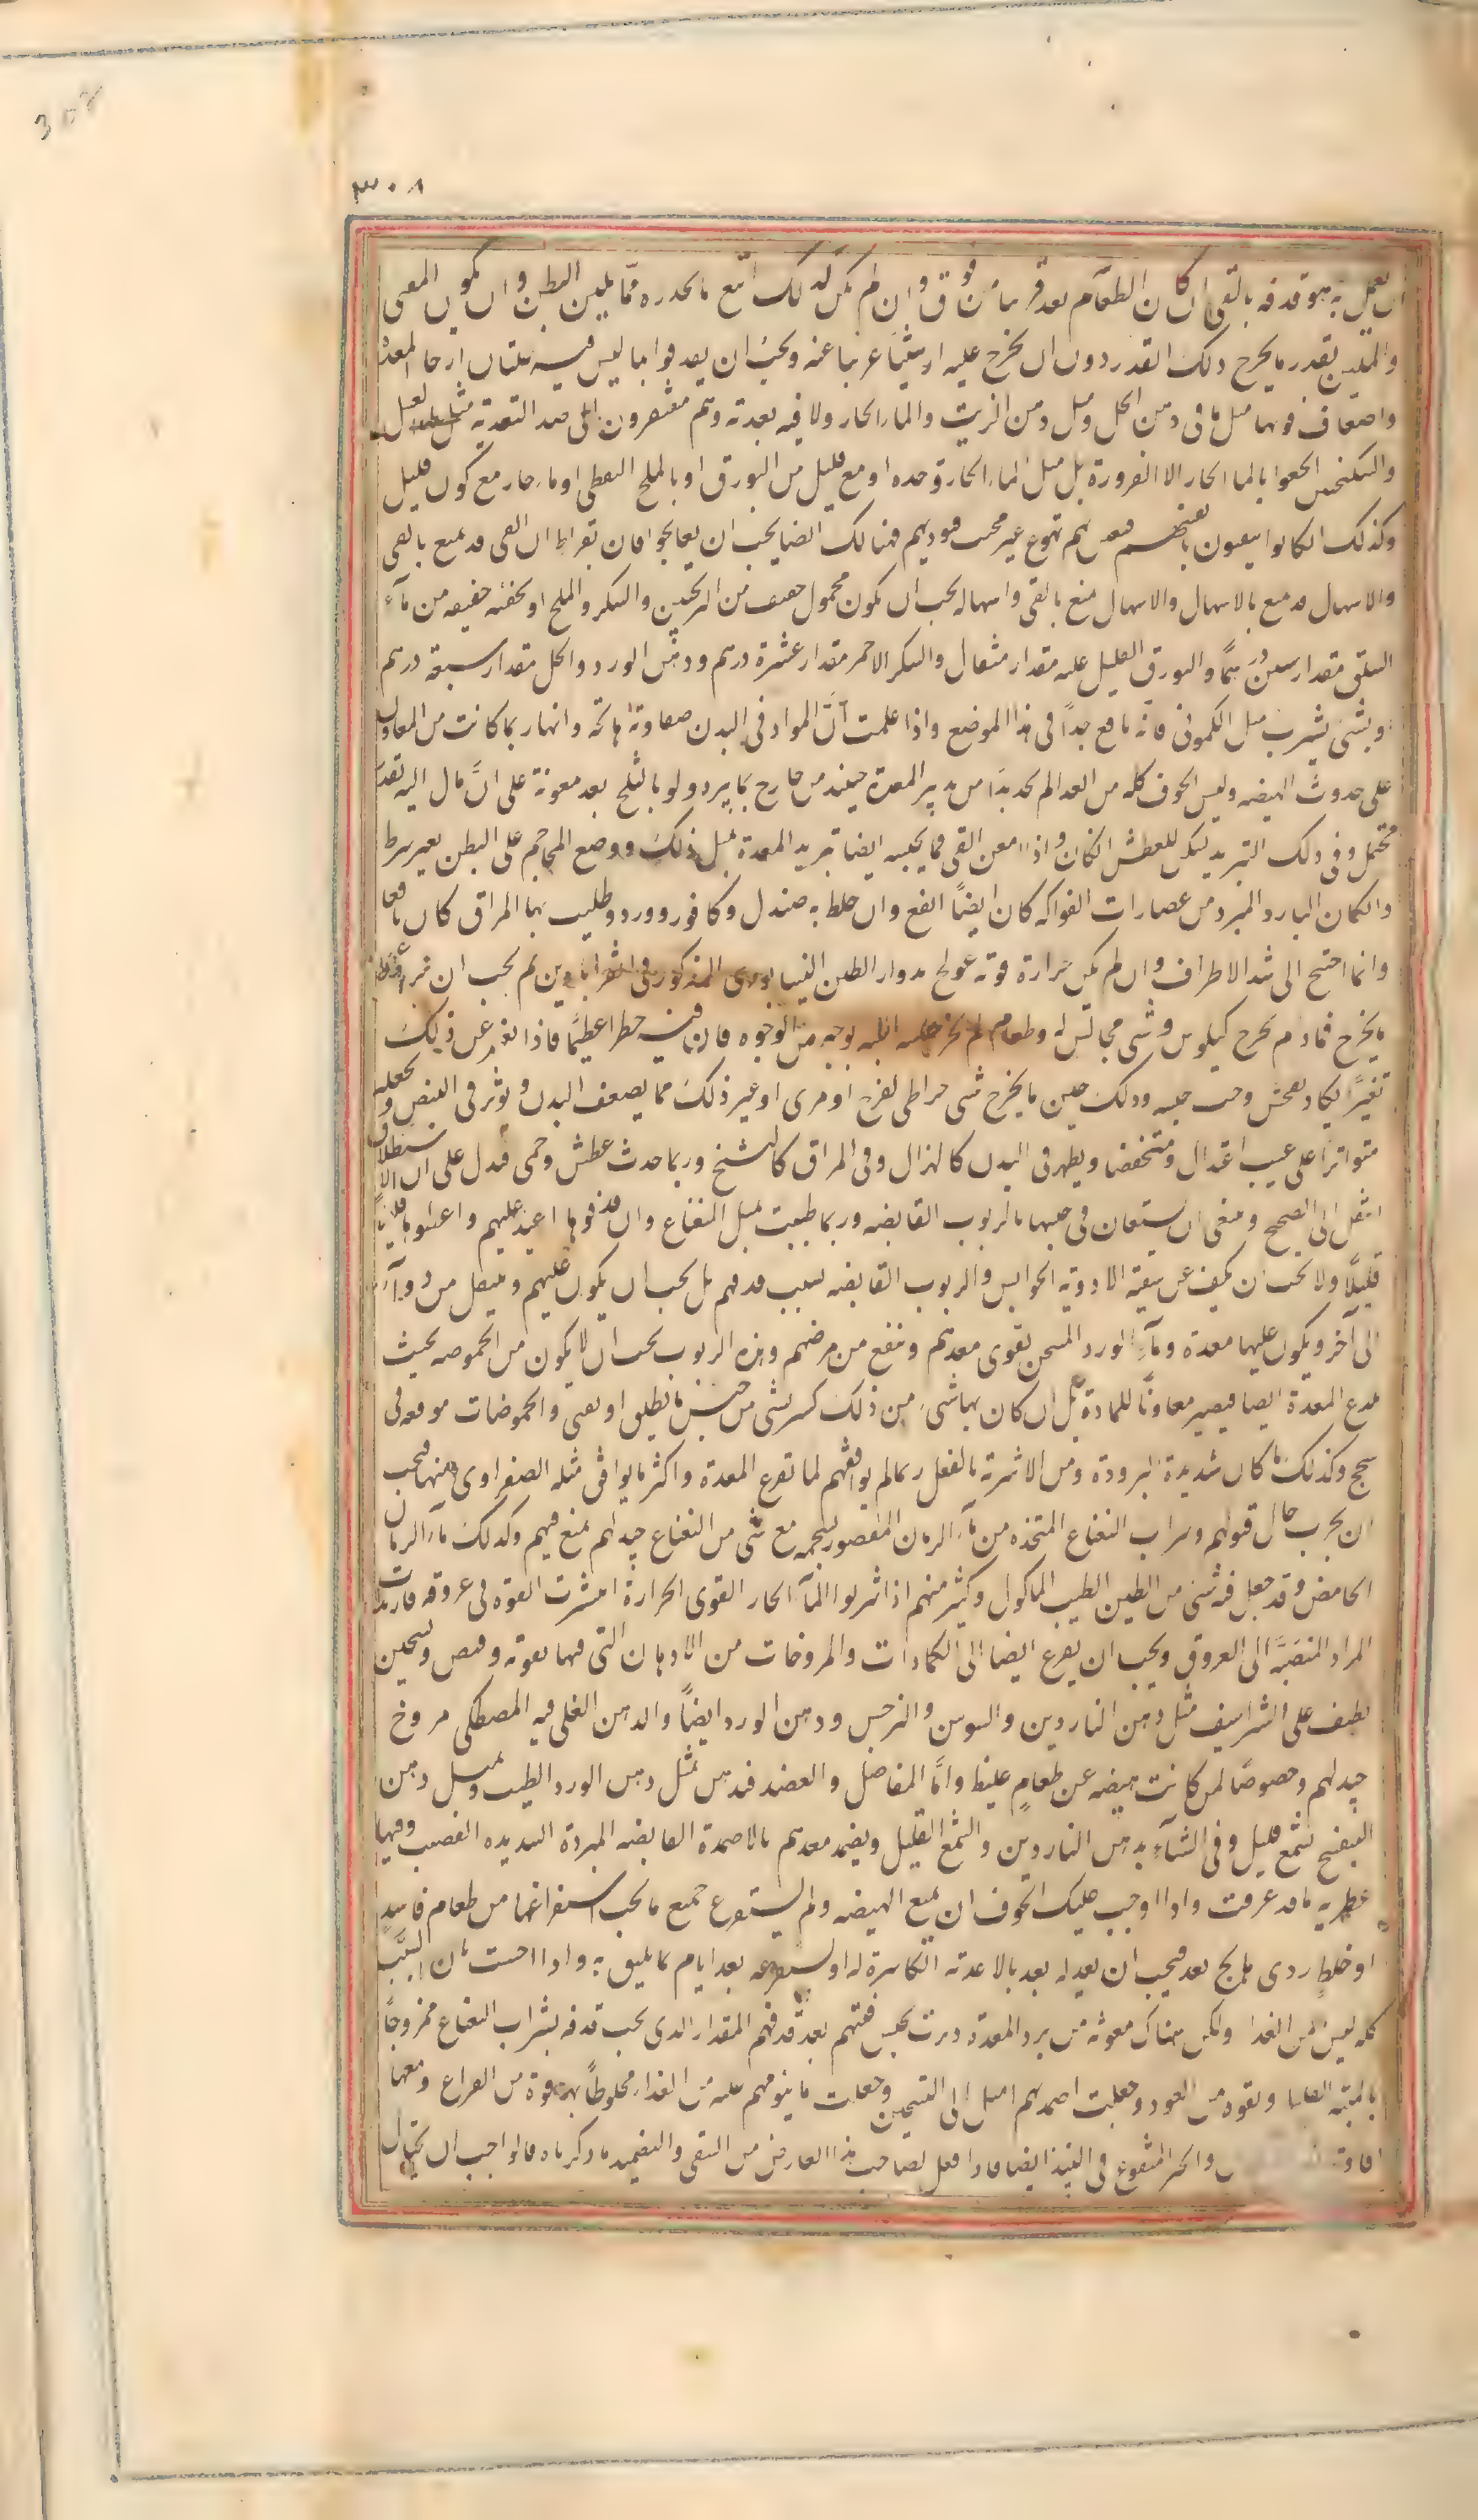 302
٣٠٨
ان يعمل به هو قذفه بالقي ان كان الطعام بعد قريبا من فوق وان لم يكن كذلك اتبع ما يحدره مما يلين البطن وان يكون القي
والتليين بقدر ما يخرج ذلك القدر دون ان يخرج عليه او شيئا غريبا عنه ويجب ان يقذفوا بما ليس فيه خلتان ارخا المعدة
واضعاف قوتها مثل ما في دهن الحل ومثل دهن الزيت والماء الحار ولا فيه تغذية وهم مفتقرون الى ضد التغذية مثل العسل
والسكنجبين الحلو بالماء الحار الا لضرورة بل مثل الماء الحار وحده او مع قليل من البورق او بالملح النفطي او ماء حار مع كمون قليل
وكذلك ان كانوا يتقيون بانفسهم فهم تهوع غير محب فيوذيهم فهنالك ايضا يجب ان يعالجوا فان بقراط ان القي قد يمنع بالقي
والاسهال قد يمنع بالاسهال والاسهال يمنع بالقي واسهاله يجب ان يكون بمحمول خفيف من الترنجبين والسكر والملح او بحقنة خفيفة من ماء
السلق مقدار ستين درهما والبورق القليل عليه مقدار مثقال والسكر الاحمر مقدار عشرة درهم ودهن الورد والحل مقدار سبعة درهم
وبشي يشرب مثل الكموني فانه نافع جدا في هذا الموضع واذا علمت ان المواد في البدن صفاوية هائجة وانها ربما كانت من المعاون
على حدوث الهيضة وليس الخوف كله من الغذا لم تجد بدا من تدبير المعدة حينئذ من خارج بما يبرد ولو بالثلج بعد معونة على ان مال اليه بقدر
محتمل وفي ذلك التبريد تسكين للعطش ان كان واذا امعن القي فمما يحبسه ايضا تبريد المعدة بمثل ذلك ووضع المحاجم على البطن بغير شرط
وان كان البارد المبرد من عصارات الفواكه كان ايضا انفع وان خلط به صندل وكافور وورد وطليت بها المراق كان نافعا
وانما احتيج الى شد الاطراف وان لم يكن حرارة قوية عولج بدواء الطين النيسابوري المذكور في القراباذين ثم يجب ان
ما يخرج فما دام يخرج كيلوس وشي مجانس له وطعام لم يحبس البتة بوجه من الوجوه فان فيه خطرا عظيما فاذا تغير عن ذلك
تغيرا يكاد يفحش وجب حبسه وذلك حين ما يخرج شي خراطي لزج او مري او غير ذلك مما يضعف البدن ويوثر في النبض ويجعله
متواترا على غير اعتدال ومنخفضا ويظهر في البدن كالهزال وفي المراق كالتشنج وربما حدث عطش وحمى فدل على ان الاستطلاق
انتقل الى الصحيح وينبغي ان يستعان في حبسها بالربوب القابضة وربما طيبت بمثل النعناع وان قذفوها اعيد عليهم واعطوها قليلا
قليلا ولا يجب ان يكف عن سقيه الادوية الحوابس والربوب القابضة بسبب قذفهم بل يجب ان يكون عليهم وينتقل من دواء
الى آخر ويكون عليهما معدة وماء الورد المسخن يقوى معدتهم وينفع من مرضهم وهذه الربوب يجب ان لا يكون من الحموضة بحيث
يلذع المعدة ايضا فيصير معاونا للمادة بل ان كان بها شي من ذلك كسر بشي من جنس ما يطلق او يقي والحموضات موقعة في
سحج وكذلك ما كان شديدة البرودة ومن الاشربة بالفعل ربما لم يوافقهم لما تقرع المعدة واكثر ما يوافق مثله الصفراوى منها فيجب
ان يجرب حال قبولهم وشراب النعناع المتخذ من ماء الرمان المعصور بشحمه مع شي من النعناع جيد لهم يمنع قيهم وكذلك ماء الرمان
الحامض وقد جعل فيه شي من الطين الطيب الماكول وكثير منهم اذا شربوا الماء الحار القوى الحرارة انتشرت القوة في عروقه فارتدت
المراد المنصبة الى العروق ويجب ان يفزع ايضا الى الكمادات والمروخات من الادهان التي فيها تقوية وقبض وتسخين
لطيف على الشراسيف مثل دهن الناردين والسوسن والنرجس ودهن الورد ايضا والدهن المغلي فيه المصطكى مروخ
جيد لهم وخصوصا لمن كانت هيضته عن طعام غليظ واما المفاصل والعضد فدهن بمثل دهن الورد الطيب ومثل دهن
البنفسج بشمع قليل وفي الشتاء بدهن الناردين والشمع القليل ويضمد معدتهم بالاضمدة القابضة المبردة الشديدة القبض وفيها
عطرية ما قد عرفت واذا اوجب عليك الخوف ان يمنع الهيضة ولم يستفرغ جميع ما يجب استفراغها من طعام فاسد
او خلط ردى هائج بعد فيجب ان تعدله بعد بالاغذية الكاسرة له او تستفرغه بعد ايام بما يليق به واذا احست بان السبب
كله ليس من الغذا ولكن هناك معونة من برد المعدة دبرت بحبس قيئهم بعد قذفهم المقدار الذى يجب قذفه بشراب النعناع ممزوجا
بالميبة القليلة وبقوة من العود وجعلت اضمدتهم اميل الى التسخين وجعلت ما ينومهم عليه من الغذاء مخلوطا بقوة من الفراخ ومعها
افاوية والخبز المنقوع في النبيذ ايضا فاذا فعل بصاحب هذا العارض من التقى والتضميد ما ذكرناه فالواجب ان يحتال